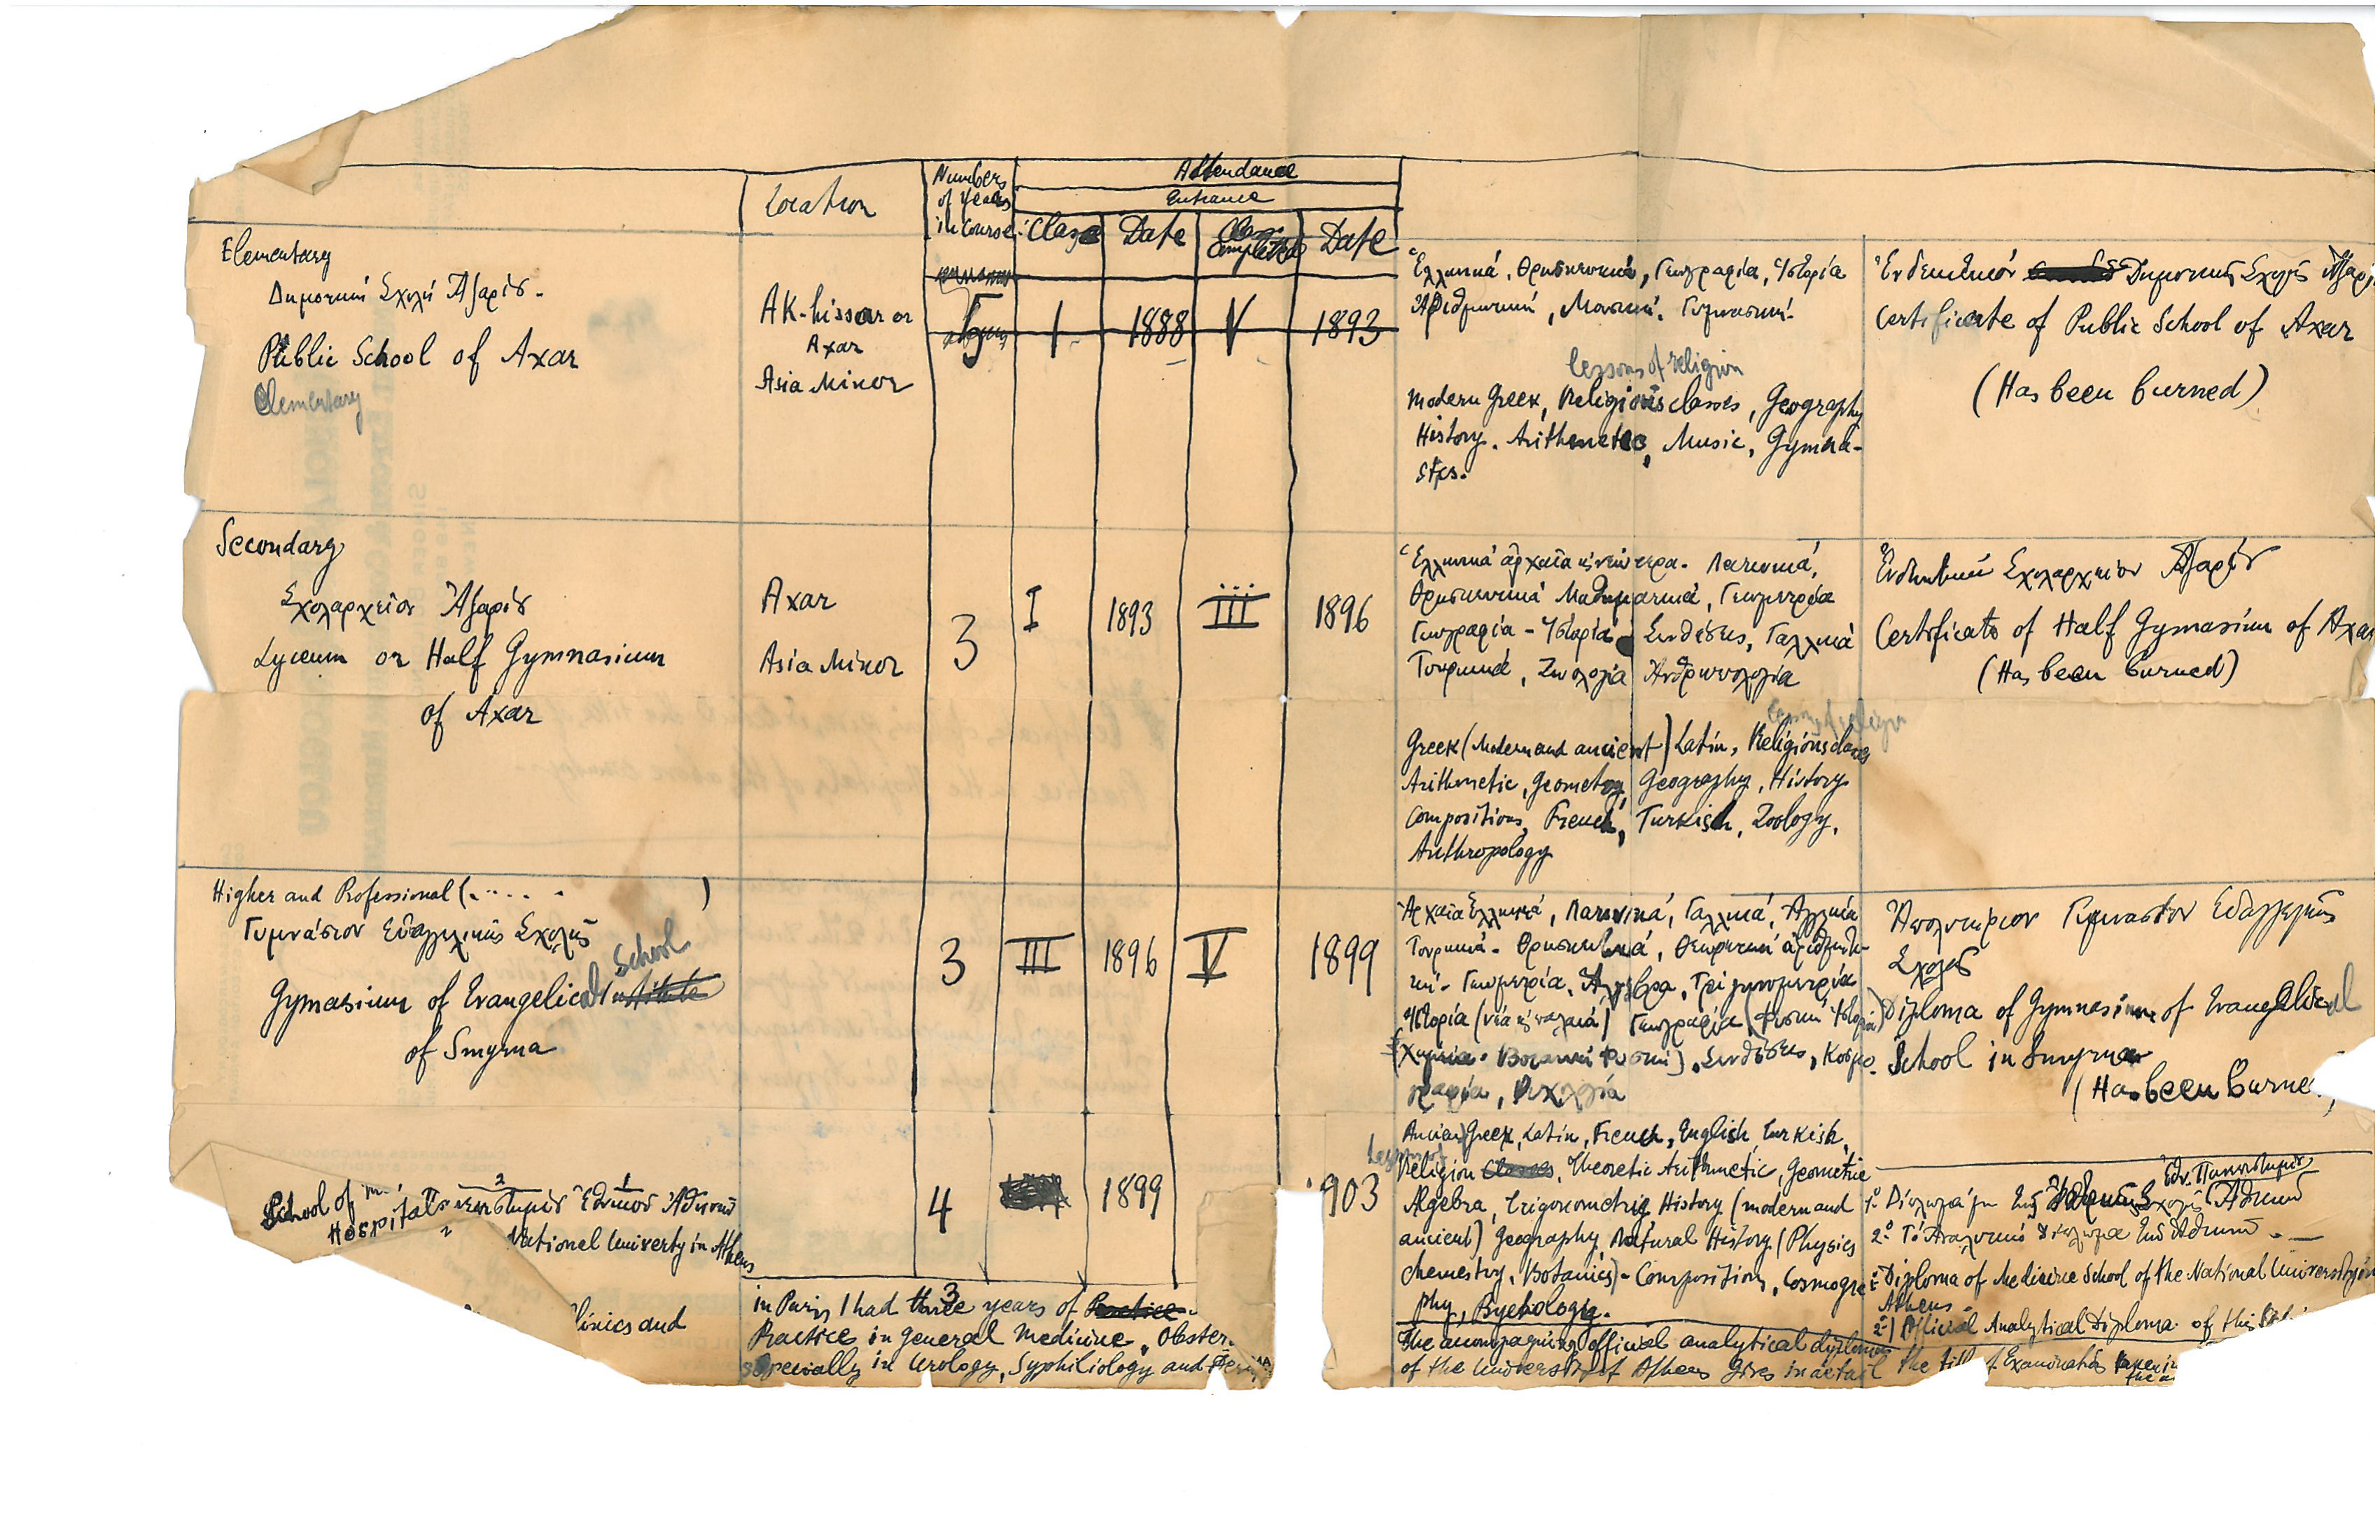 Location
Numbers
of Years
in Course
Attendance
Entrance
Class
Date
Class
Completed
Date
Elementary
Δημοτική Σχολή Ἀξαρίου
Public School of Axar
Elementary
AK-hissar or
Axar
Asia Minor
5
I
1888
V
1893
Ἑλληνικά, Θρησκευτικά, Γεωγραφία, Ἱστορία
Ἀριθμητική, Μουσική, Γυμναστική.
lessons of religion
Modern Greek, Religious classes, Geography
History. Arithmetic, Music, Gymna-
stics.
Ἐνδεικτικόν Δημοτικῆς Σχολῆς Ἀξαρί
Certificate of Public School of Axar
(Has been burned)
Secondary
Σχολαρχεῖον Ἀξαρίου
Lyceum or Half Gymnasium
of Axar
Axar
Asia Minor
3
I
1893
III
1896
Ἑλληνικά ἀρχαῖα κ νεώτερα. Λατινικά,
Θρησκευτικά Μαθηματικά, Γεωμετρία
Γεωγραφία - Ἱστορία Συνθέσεις, Γαλλικά
Τουρκικά, Ζωολογία Ἀνθρωπολογία
lessons of religion
Greek (Modern and ancient) Latin, Religions classes
Arithmetic, Geometry, Geography, History
Compositions, French, Turkish, Zoology,
Anthropology
Ἐνδεικτικόν Σχολαρχείου Ἀξαρίου
Certificate of Half Gymnasium of Axar
(Has been burned)
Higher and Professional (..... )
Γυμνάσιον Εὐαγγελικῆς Σχολῆς
School
Gymasium of Evangelical Institute
of Smyrna
3
III
1896
V
1899
Ἀρχαῖα Ἑλληνικά, Λατινικά, Γαλλικά, Ἀγγλικά
Τουρκικά - Θρησκευτικά, Θεωρητική ἀριθμητι-
κή - Γεωμετρία, Ἄλγεβρα, Τριγωνομετρία
Ἱστορία (νέα κ παλαιά) Γεωγραφία (Φυσική Ἱστορία)
(Χημεία. Βοτανική Φυσική), Συνθέσεις, Κοσμο-
γραφία, Ψυχολογία
Ancien Greek, Latin, French, English, Turkish,
Lessons of
Religion Classes, Theoretic Arithmetic, Geometrie
Algebra, Trigonometrie, History (modern and
ancient) Geography, Natural History (Physics
chemestry, Botanics) - Compositions, Cosmogra-
phy, Psychology.
Ἀπολυτήριον Γυμνασίου Εὐαγγελικῆς
Σχολῆς
Diploma of Gymnasium of Evangelical
School in Smyrna
(Has been burne
School of
Hospital
2
1
Πανεπιστημίου Ἐθνικοῦ Ἀθηνῶν
National Univerty in Athens
linics and
4
1899
903
in Paris I had three 3 years of Practice
Practice in general Medicine, Obster.
specially in Urology, Syphiliology and
The accompagning official analytical diploma
of the University of Athens gives in detail the tit of Examinatios taken in
Ἐθν. Πανεπιστημίου
1º Δίπλωμά μου Σχολῆς Ἀθηνῶν
2º Τό Ἀναλυτικό δίπλωμα Ἀθηνῶν. —
1- Diploma of Medicine School of the National University in
Athens -
2-) Official Analytical Diploma of this